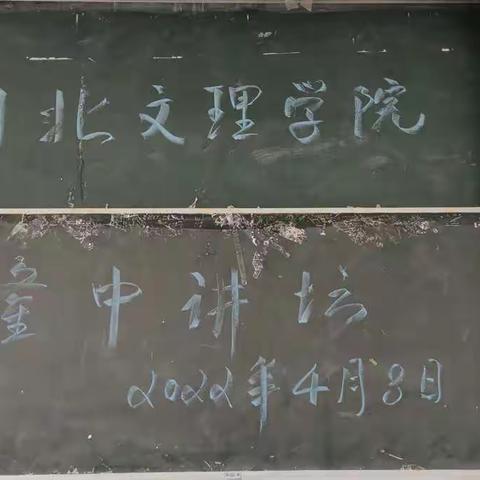 北文理学院
中讲坛
2022年4月8日